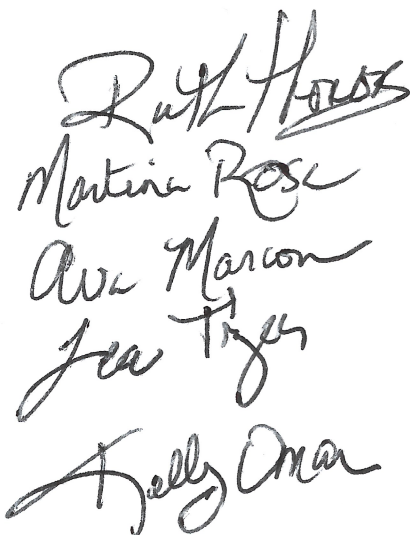 Ruth Horos
Martina Rose
Ava Marcon
Lea Tiger
Kelly Omar